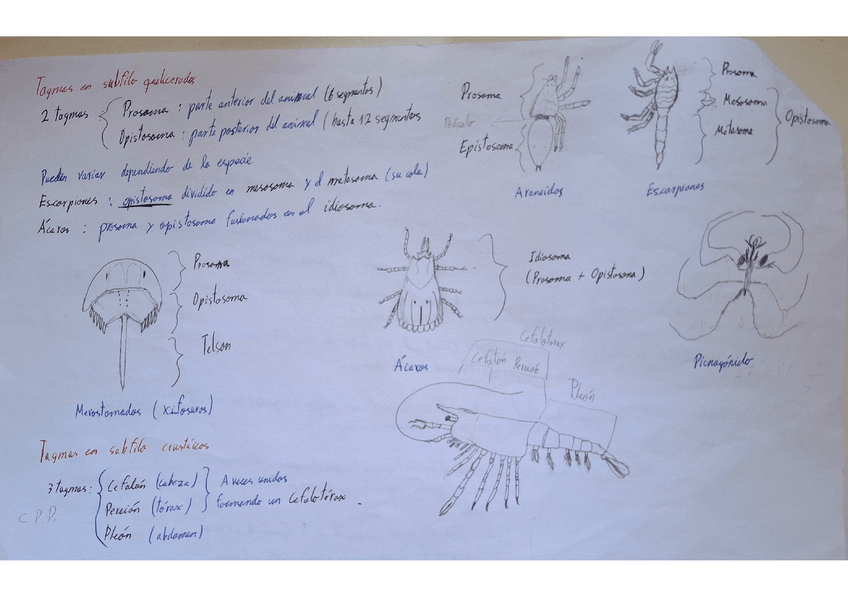 Tagmas en subfilo quelicerados
2 tagmas
Prosoma : parte anterior del animal (6 segmentos)
Opistosoma : parte posterior del animal (hasta 12 segmentos
Pueden variar dependiendo de la especie
Escorpiones : opistosoma dividido en mesosoma y el metasoma (su cola)
Ácaros : prosoma y opistosoma fusionados en el idiosoma.
Prosoma
Pedicelo
Epistosoma
Araneidos
Prosoma
Mesosoma
Metasoma
Opistosoma
Escorpiones
Prosoma
Opistosoma
Telson
Merostomados (xifosuros)
Idiosoma
(Prosoma + Opistosoma)
Ácaros
Picnogónido
Cefalotórax
Cefalón Pereión
Pleón
Tagmas en subfilo crustáceos
3 tagmas:
Cefalón (cabeza)
Pereión (tórax)
Pleón (abdomen)
A veces unidos
formando un Cefalotórax .
C.P.P.